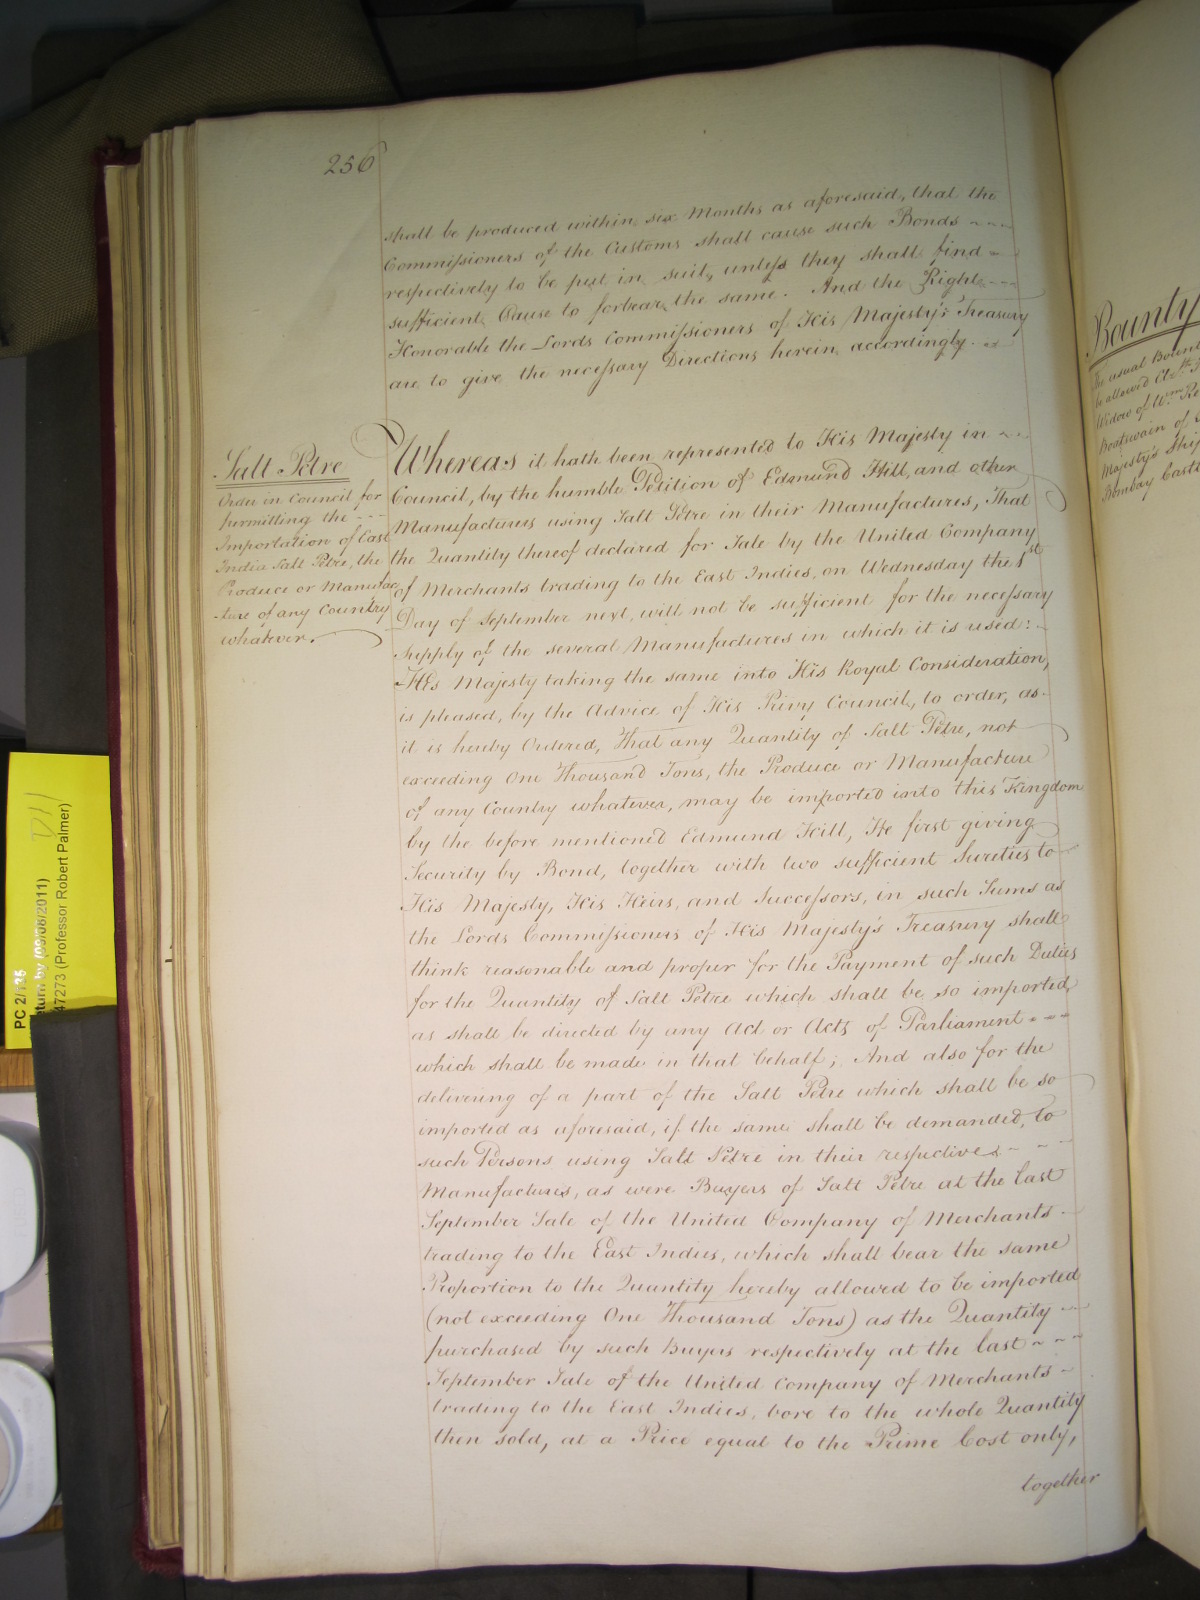 256
shall be produced within six Months as aforesaid, that the
Commissioners of the Customs shall cause such Bonds
respectively to be put in suit, unless they shall find
sufficient Cause to forbear the same. And the Right
Honorable the Lords Commissioners of His Majesty's Treasury
are to give the necessary Directions herein accordingly.
Salt Petre
Order in Council for
permitting the
Importation of East
India Salt Petre, the
Produce or Manufac
-ture of any Country
whatever.
Whereas it hath been represented to His Majesty in
Council, by the humble Petition of Edmund Hill, and other
Manufacturers using Salt Petre in their Manufactures, That
the Quantity thereof declared for Sale by the United Company
of Merchants trading to the East Indies, on Wednesday the 1st
Day of September next, will not be sufficient for the necessary
Supply of the several Manufactures in which it is used:
His Majesty taking the same into His Royal Consideration,
is pleased, by the Advice of His Privy Council, to order, as
it is hereby Ordered, That any Quantity of Salt Petre, not
exceeding One Thousand Tons, the Produce or Manufacture
of any Country whatever, may be imported into this Kingdom
by the before mentioned Edmund Hill, He first giving
Security by Bond, together with two sufficient Sureties to
His Majesty, His Heirs, and Successors, in such Sums as
the Lords Commissioners of His Majesty's Treasury shall
think reasonable and proper for the Payment of such Duties
for the Quantity of Salt Petre which shall be so imported,
as shall be directed by any Act or Acts of Parliament
which shall be made in that behalf; And also for the
delivering of a part of the Salt Petre which shall be so
imported as aforesaid, if the same shall be demanded, to
such Persons using Salt Petre in their respective
Manufactures, as were Buyers of Salt Petre at the last
September Sale of the United Company of Merchants
trading to the East Indies, which shall bear the same
Proportion to the Quantity hereby allowed to be imported
(not exceeding One Thousand Tons) as the Quantity
purchased by such Buyers respectively at the last
September Sale of the United Company of Merchants
trading to the East Indies, bore to the whole Quantity
then sold, at a Price equal to the Prime Cost only,
together
Bounty
The usual Boun
be allowed
Widow of Wm
Boatswain of
Majesty's Ship
Bombay Castle
PC 2/135
(09/08/2011)
47273 (Professor Robert Palmer)
D11